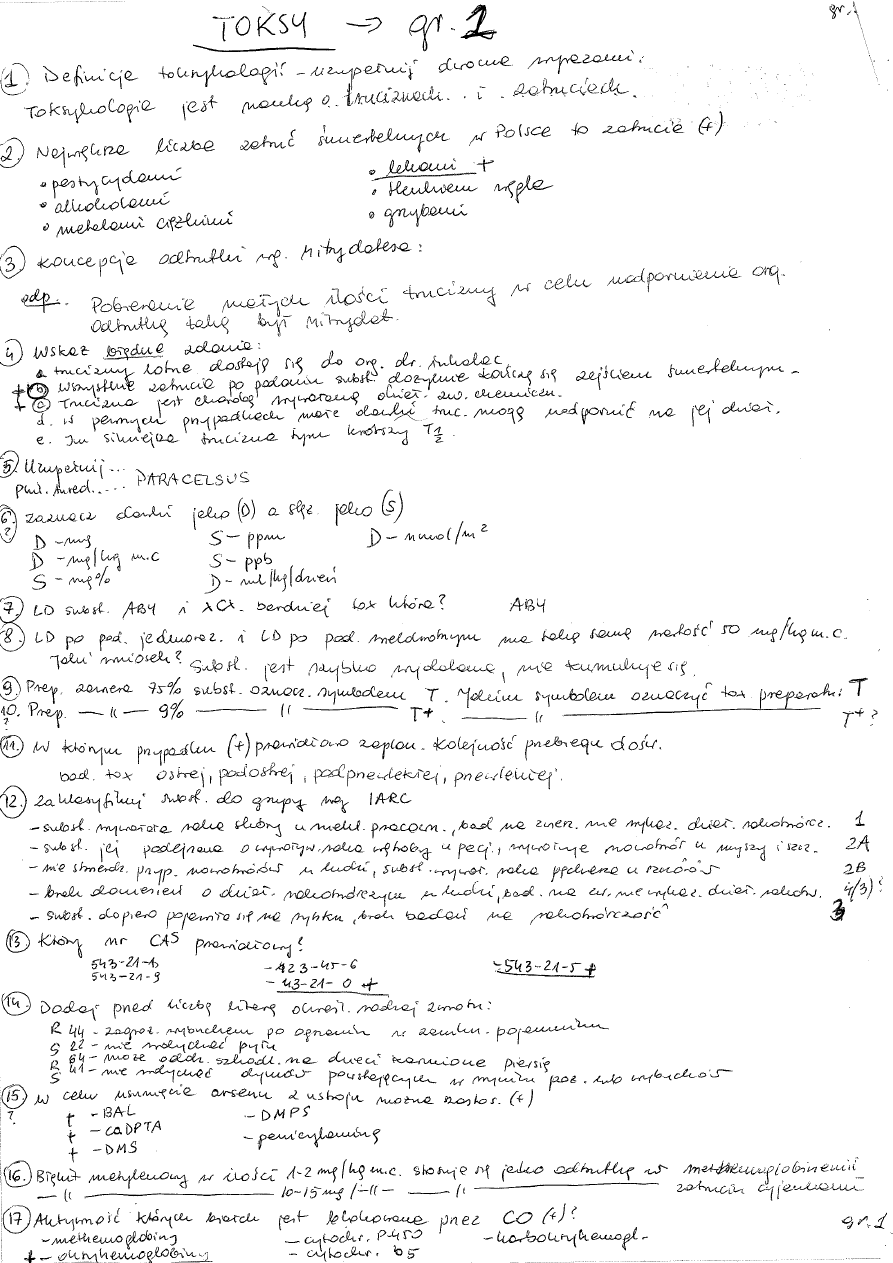 TOKSY → gr.1
gr.1
1. Definicje toksykologii - uzupełnij dwoma wyrazami:
Toksykologia jest nauką o truciznach.. i . zatruciach.
2. Największa liczba zatruć śmiertelnych w Polsce to zatrucie (+)
• pestycydami • lekami +
• alkoholami • tlenkiem węgla
• metalami ciężkimi • grzybami
3. Koncepcja odtrutki wg. Mitrydatesa:
odp. Pobieranie małych ilości trucizny w celu uodpornienia org.
Odtrutką taką był Mitrydat.
4. Wskaż błędne zdanie:
a. trucizny lotne dostają się do org. dr. inhalac
+ b. Wszystkie zatrucia po podaniu subst. dożylnie kończą się zejściem śmiertelnym -
+ c. Trucizna jest chorobą wywołaną dział. zw. chemiczn.
d. w pewnych przypadkach małe dawki truc. mogą uodpornić na jej dział.
e. Im silniejsza trucizna tym krótszy T½.
5. Uzupełnij...
Phil. Aured..... PARACELSUS
6. Zaznacz dawki jako (D) a stęż. jako (S)
? D - mg S - ppm D - nmol/m²
D - mg/kg m.c S - ppb
S - mg% D - ml/kg/dzień
7. LD subst. AB4 i XCX. bardziej tox która? AB4
8. LD po pod. jednoraz. i LD po pod. wielokrotnym ma taką samą wartość 50 mg/kg m.c.
Jaki wniosek? Subst. jest szybko wydalana, nie kumuluje się.
9. Prep. zawiera 75% subst. oznacz. symbolem T. Jakim symbolem oznaczyć tox preparatu: T
10. Prep. — ıı — 9% ——— ıı ——— T+. ——— ıı ——— T+ ?
?
11. W którym przypadku (+) prawidłowo zaplan. kolejność przebiegu dośw.
bad. tox ostrej, podostrej, podprzewlekłej, przewlekłej.
12. Zaklasyfikuj subst. do grupy wg IARC
- subst. wywołała raka skóry u wielu pracown., bad na zwierz. nie wykaz. dział. rakotwórcz. 1
- subst. jej podejrzana o wywoływ. raka wątroby u pacj., wywołuje nowotwór u myszy i szcz. 2A
- nie stwierdz. przyp. nowotworów u ludzi, subst. wywoł. raka pęcherza u szczurów 2B
- brak doniesień o dział. rakotwórczym u ludzi, bad. na zw. nie wykaz. dział. rakotw. 4(3)?
- subst. dopiero pojawiła się na rynku, brak badań na rakotwórczość 3
13. Który nr CAS prawidłowy?
543-21-6 - 423-45-6 - 543-21-5 +
543-21-9 - 43-21-0 +
14. Dodaj przed liczbą literę określ. rodzaj zwrotu:
R 44 - zagroż. wybuchem po ogrzaniu w zamkn. pojemniku
S 22 - nie wdychać pyłu
R 64 - może oddz. szkodl. na dzieci karmione piersią
S 41 - nie wdychać dymów powstających w wyniku poż. lub wybuchów
15. W celu usunięcia arsenu z ustroju można zastos. (+)
? + - BAL - DMPS
+ - CaDPTA - penicylaminę
+ - DMS
16. Błękit metylenowy w ilości 1-2 mg/kg m.c. stosuje się jako odtrutkę w methemoglobinemii
— ıı ——— 10-15 mg /-ıı- — ıı ——— zatruciu cyjankami
17. Aktywność których białek jest blokowana przez CO (+)? gr.1.
- methemoglobiny - cytochr. P450 - karboksyhemogl-
+ - oksyhemoglobiny - cytochr. b5